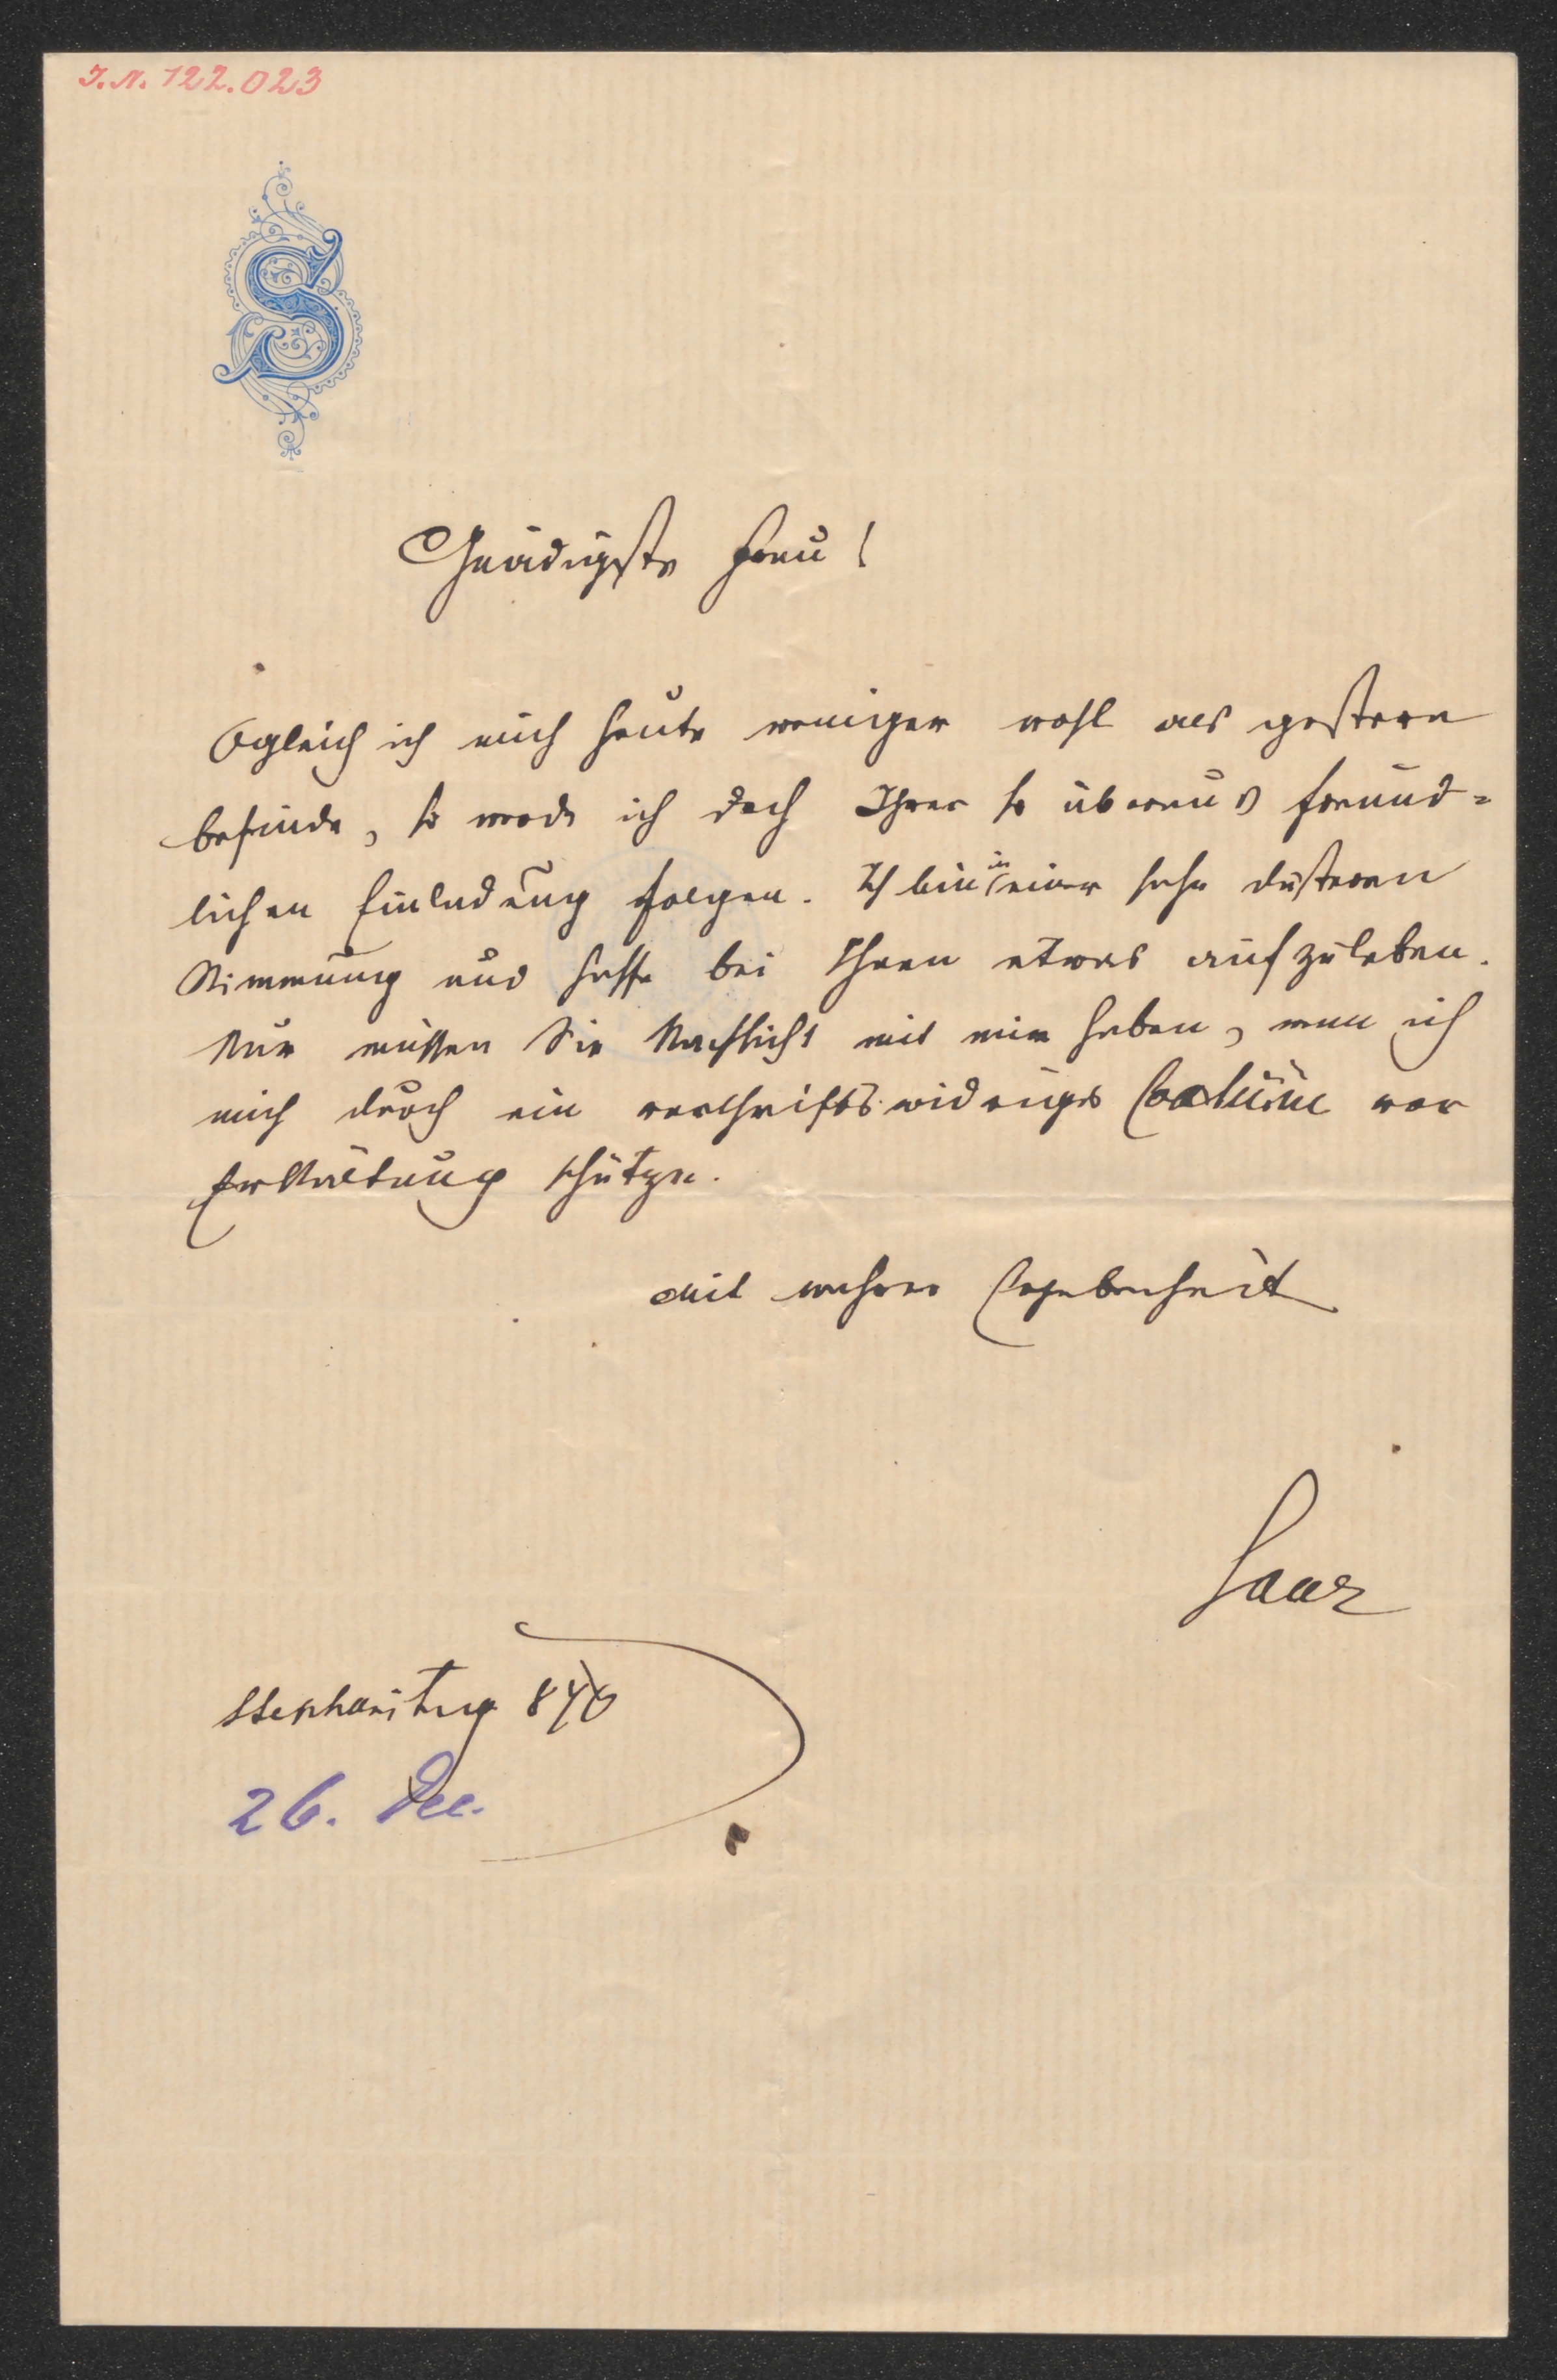 I.N. 122.023
S
Gnädigste Frau!
Ogleich ich mich heute weniger wohl als gestern
befinde, so werde ich doch Ihrer so überaus freund=
lichen Einladung folgen. Ich bin in einer sehr düsteren
Stimmung und hoffe bei Ihnen etwas aufzuleben.
Nur müssen Sie Nachsicht mit mir haben, wenn ich
mich durch ein vorschriftswidriges Costüm vor
Erkältung schütze.
Mit wahrer Ergebenheit
Saar
Stephanitag
26. Dec.